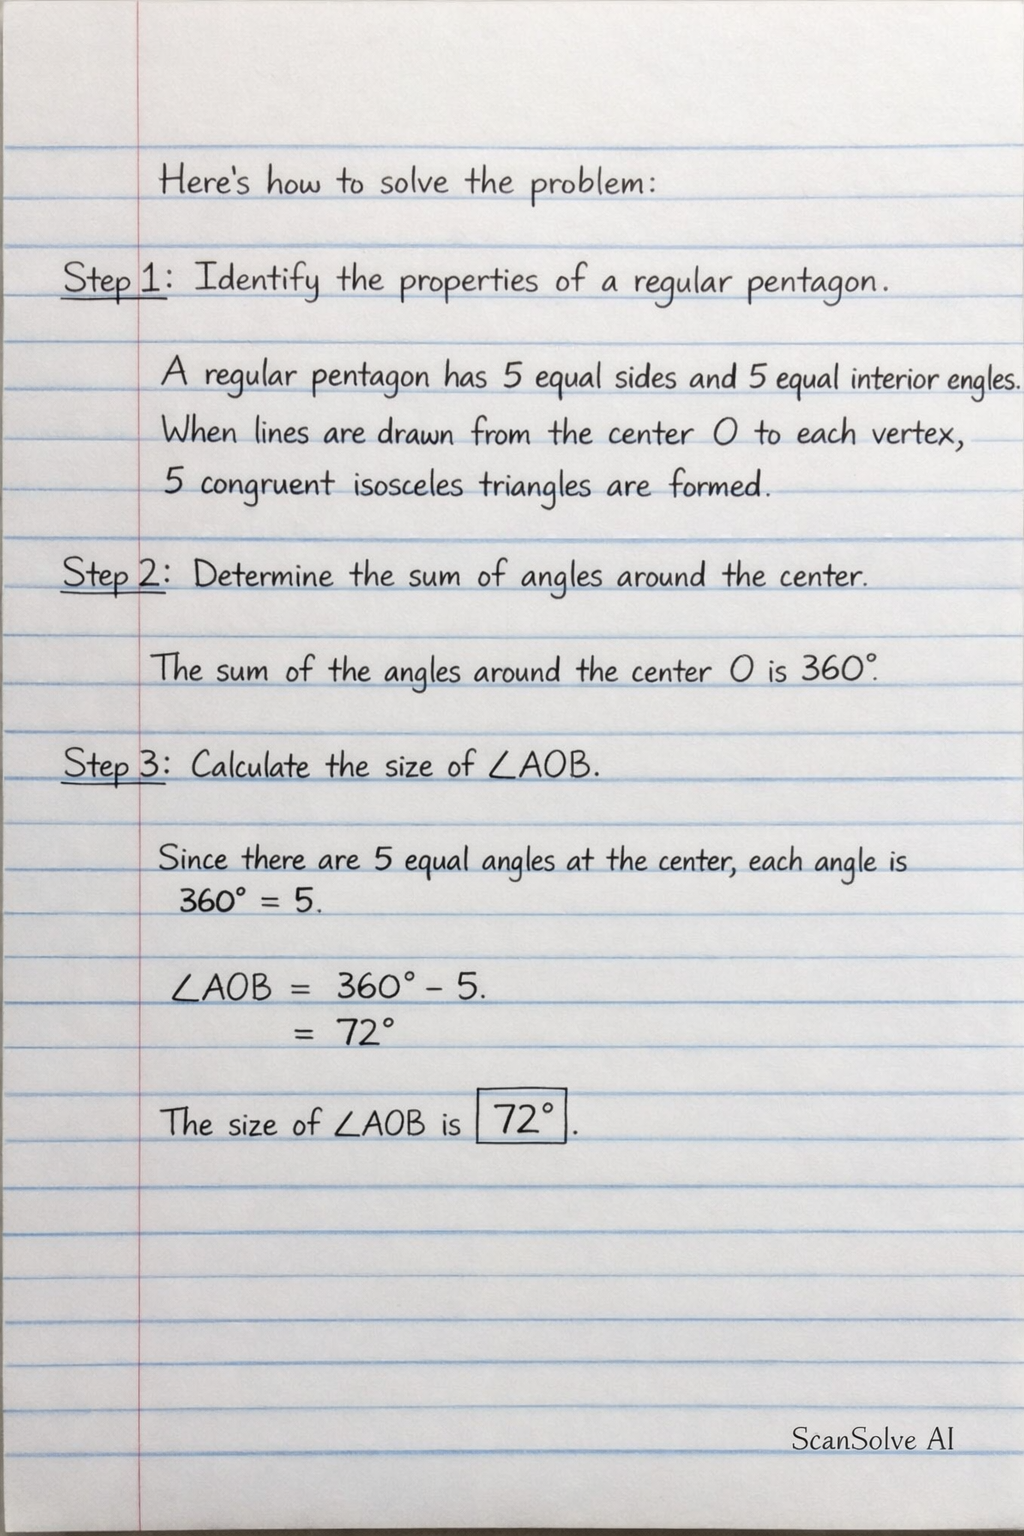 Here's how to solve the problem:
Step 1: Identify the properties of a regular pentagon.
A regular pentagon has 5 equal sides and 5 equal interior engles.
When lines are drawn from the center O to each vertex,
5 congruent isosceles triangles are formed.
Step 2: Determine the sum of angles around the center.
The sum of the angles around the center O is 360°.
Step 3: Calculate the size of ∠AOB.
Since there are 5 equal angles at the center, each angle is
360° = 5.
∠AOB = 360° – 5.
= 72°
The size of ∠AOB is 72°.
ScanSolve AI